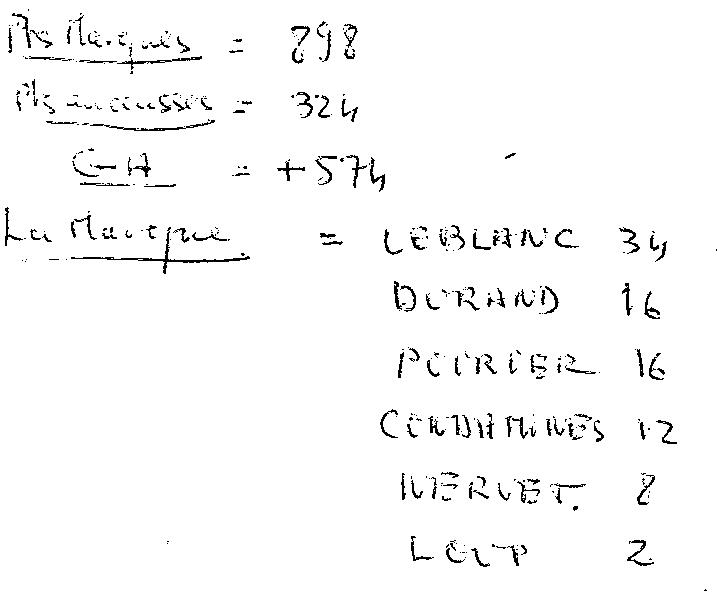 Pts Marqués = 898
Pts encaissés = 324
G-A = +574
La Marque = LEBLANC 34
DURAND 16
POIRIER 16
CONDAMINES 12
8
LOUP 2